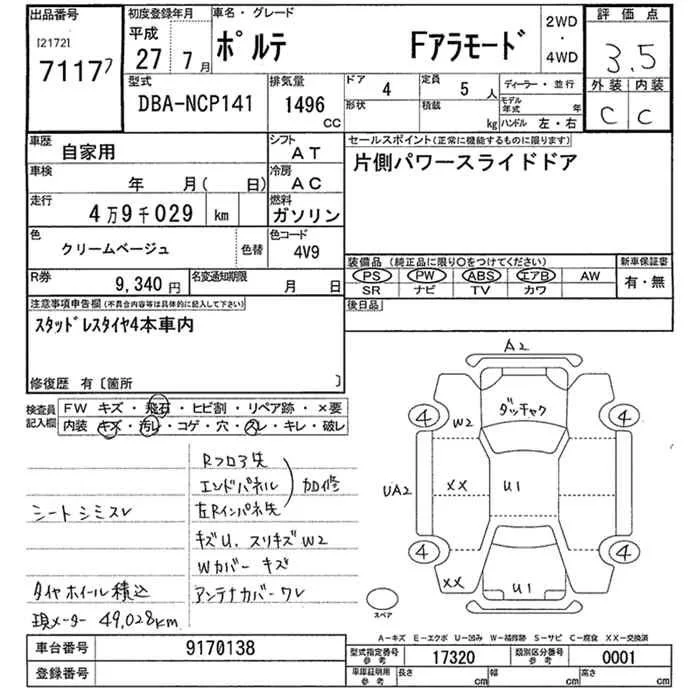 出品番号 初度登録年月 車名・グレード 2WD ・ 4WD 評価点
[2172]
7117 平成 27 年 7 月 ポルテ Fアラモード 3.5
型式 排気量 ドア 4 定員 5 人 ディーラー・並行 外装 内装
DBA-NCP141 1496 CC 形状 積載 kg モデル年式 年 ハンドル 左・右 C C
車歴 自家用 シフト AT セールスポイント(正常に機能するものに限ります)
車検 年 月( 日) 冷房 AC 片側パワースライドドア
走行 4万9千029 km 燃料 ガソリン
色 クリームベージュ 色替 色コード 4V9
装備品(純正品に限り○をつけてください) 新車保証書
PS PW ABS エアB AW 有・無
SR ナビ TV カワ
R券 9,340円 名変通知期限 月 日
後日品
注意事項申告欄(不具合内容等は具体的に記入して下さい)
スタッドレスタイヤ4本車内
修復歴 有〔箇所 〕
検査員記入欄 FW キズ・飛石・ヒビ割・リペア跡・×要
内装 キズ・汚レ・コゲ・穴・スレ・キレ・破レ
Rフロア先
エンドパネル 加修
シートシミスレ 左Rインパネ先
キズU、スリキズW2
Wカバー キズ
タイヤホイール積込 アンテナカバーワレ
現メーター 49,028km
A2
ダッチャク
4 W2 4
UA2 XX U1
4 4
XX U1
スペア
A-キズ E-エクボ U-凹み W-補修跡 S-サビ C-腐食 XX-交換済
車台番号 9170138 型式指定番号 参考 17320 類別区分番号 参考 0001
登録番号 車庫証明用 参考 長さ cm 幅 cm 高さ cm